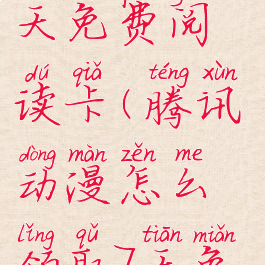 天免费阅
dú qiǎ téng xùn
读卡(腾讯
dòng màn zěn me
动漫怎么
lǐng qǔ tiān miǎn
领取7天免